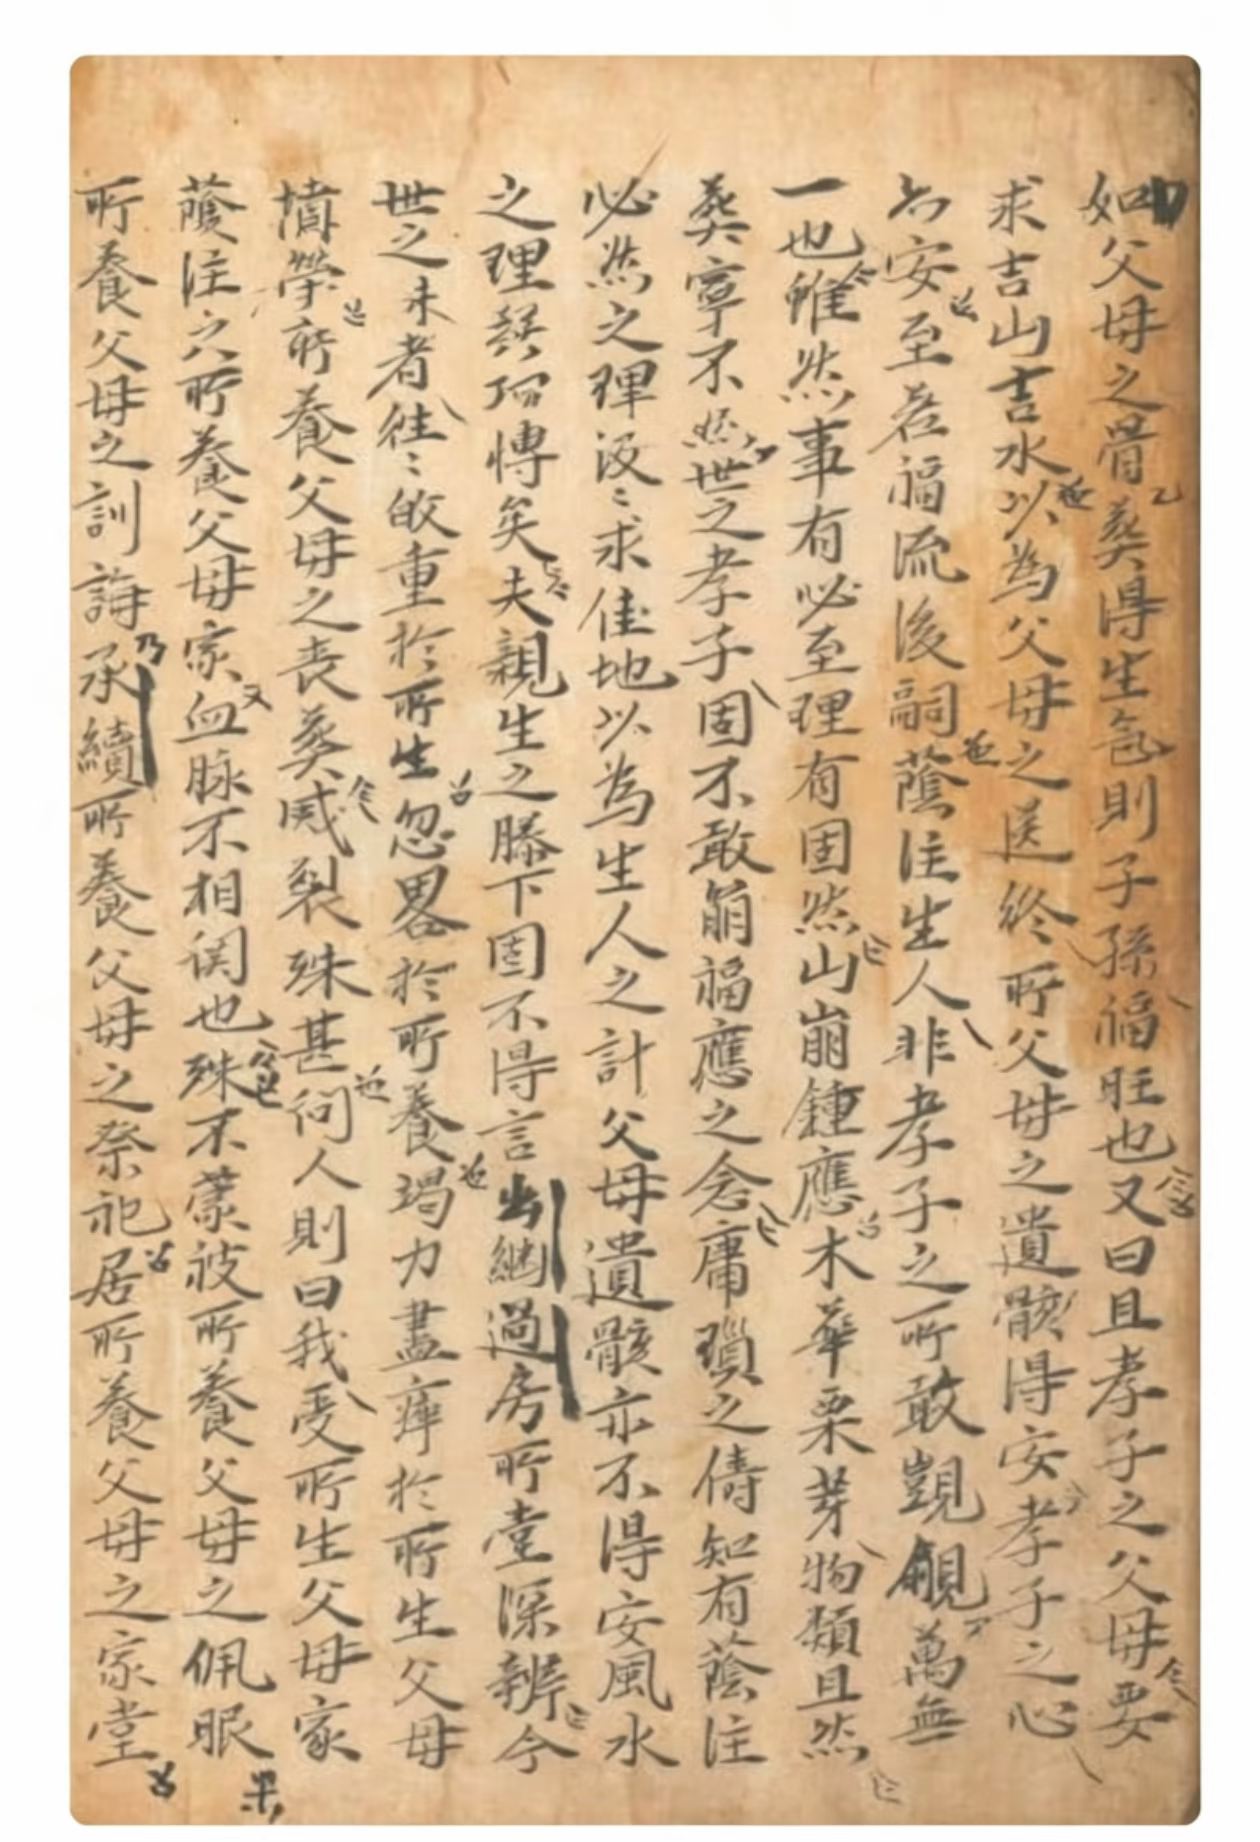 如父母之骨葬得生氣則子孫福旺也又曰且孝子之父母要
求吉山吉水以為父母之送終所父母之遺骸得安孝子之心
亦安至若福流後嗣蔭注生人非孝子之所敢覬覦萬無
一也惟然事有必至理有固然山崩鍾應木華栗芽物類且然
葬寧不然世之孝子固不敢萌福應之念庸瑣之儔知有蔭注
必然之理汲〻求佳地以為生人之計父母遺骸亦不得安風水
之理葬埋慱矣夫親生之膝下固不得言出継過房所當深辨今
世之未者往〻皎重於所生忽畧於所養竭力盡瘁於所生父母
墳塋所養父母之喪葬滅裂殊甚問人則曰我受所生父母家
蔭注之六所養父母家血脉不相関也殊不蒙被所養父母之佩眼
所養父母之訓誨承續所養父母之祭祀居所養父母之家堂